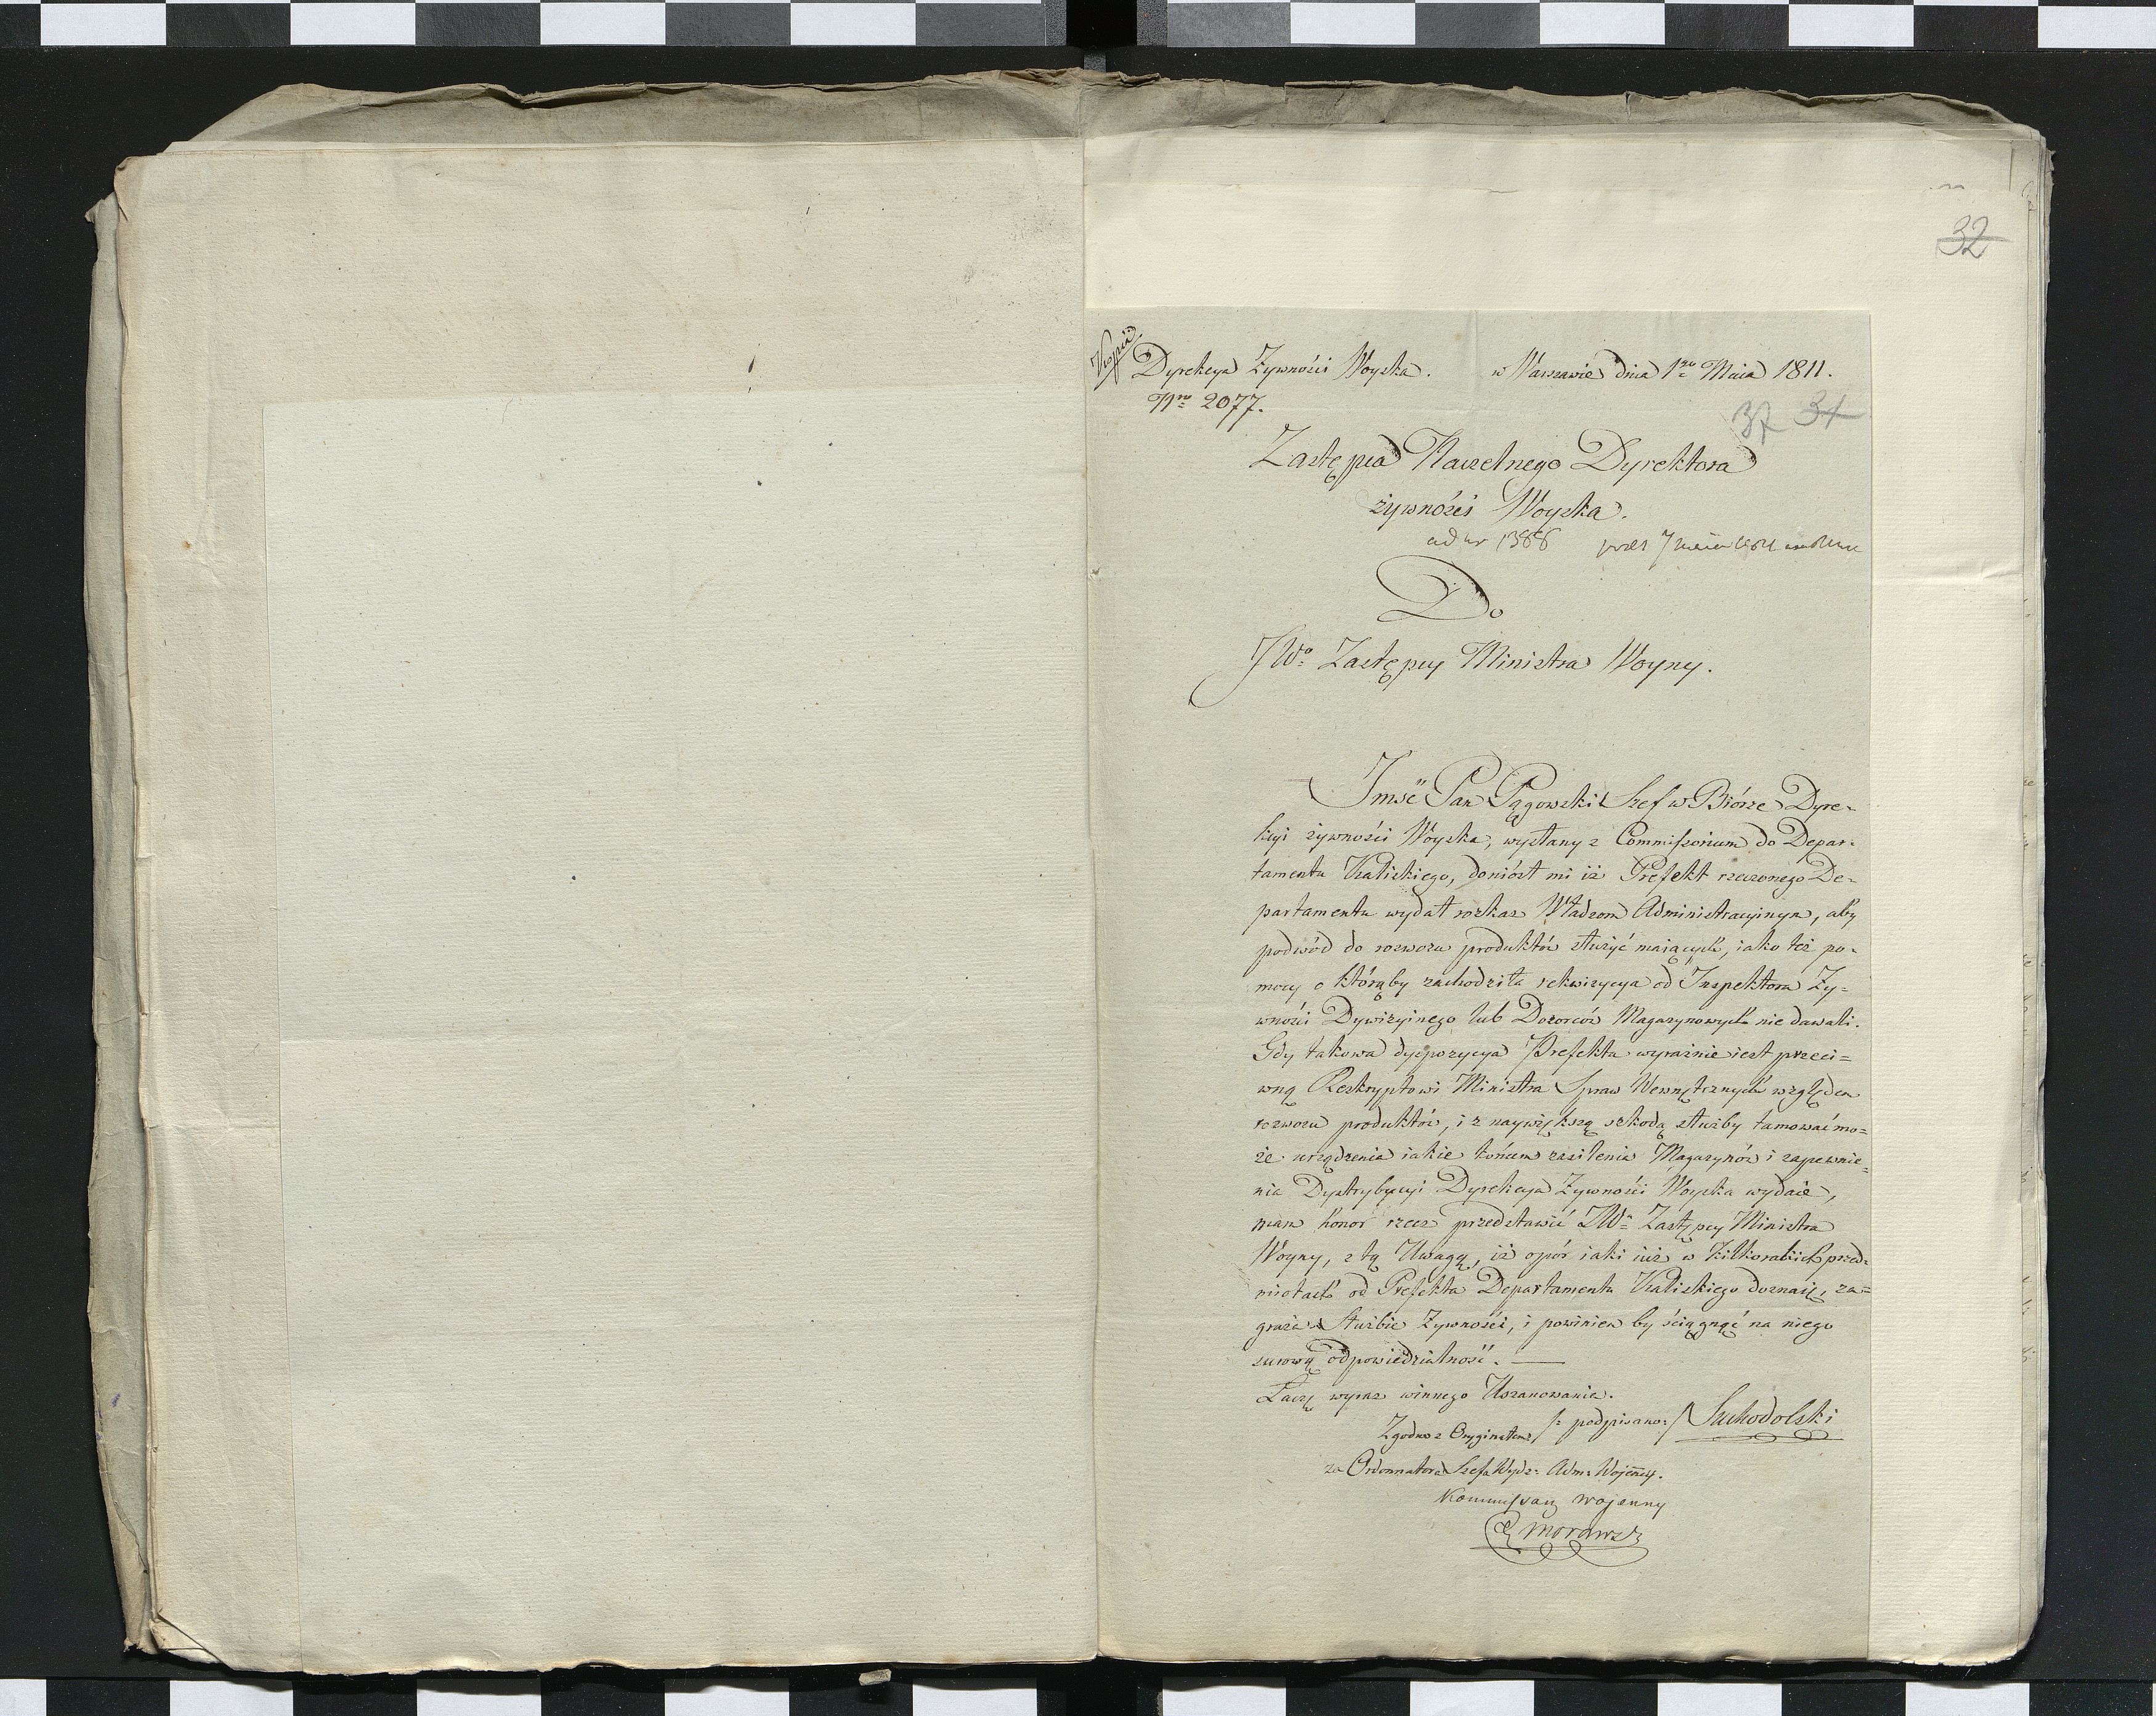 32
Kopia
Dyrekcya Żywności Woyska. w Warszawie dnia 1go Maia 1811.
Nro 2077.
37 34
Zastępca Naczelnego Dyrektora
żywności Woyska.
ad nr 1388
Do
JWo Zastępcy Ministra Woyny.
Jmsć Pan Pągowski Szef w Biórze Dyre-
kcyi żywności Woyska, wysłany z Commissorium do Depar-
tamentu Kaliskiego, doniósł mi iż Prefekt rzeczonego De-
partamentu wydał rozkaz Władzom Administracyinym, aby
podwód do rozwozu produktów służyć maiących, iako też po-
mocy o którąby zachodziła rekwizycya od Inspektora Ży-
wności Dywizyinego lub Dozorców Magazynowych nie dawali.
Gdy takowa dyspozycya Prefekta wyraźnie iest przeci-
wną Reskryptowi Ministra Spraw Wewnętrznych względem
rozwozu produktów, i z naywiększą szkodą służby tamować mo-
że urządzenia iakie końcem zasilenia Magazynów i zapewnie-
nia Dystrybucyi Dyrekcya Żywności Woyska wydaie,
mam honor rzecz przedstawić JWu Zastępcy Ministra
Woyny, z tą Uwagą, iż opór iaki iuż w kilkorakich przed-
miotach od Prefekta Departamentu Kaliskiego doznaię, za-
graża Służbie Żywności, i powinien by ściągnąć na niego
surową odpowiedzialność. —
Łączę wyraz winnego Uszanowania.
/: podpisano :/ Suchodolski
Zgodno z Oryginałem
za Ordonnatora Szefa Wydz: Adm: Wojennej.
Kommissarz Wojenny
Morawski